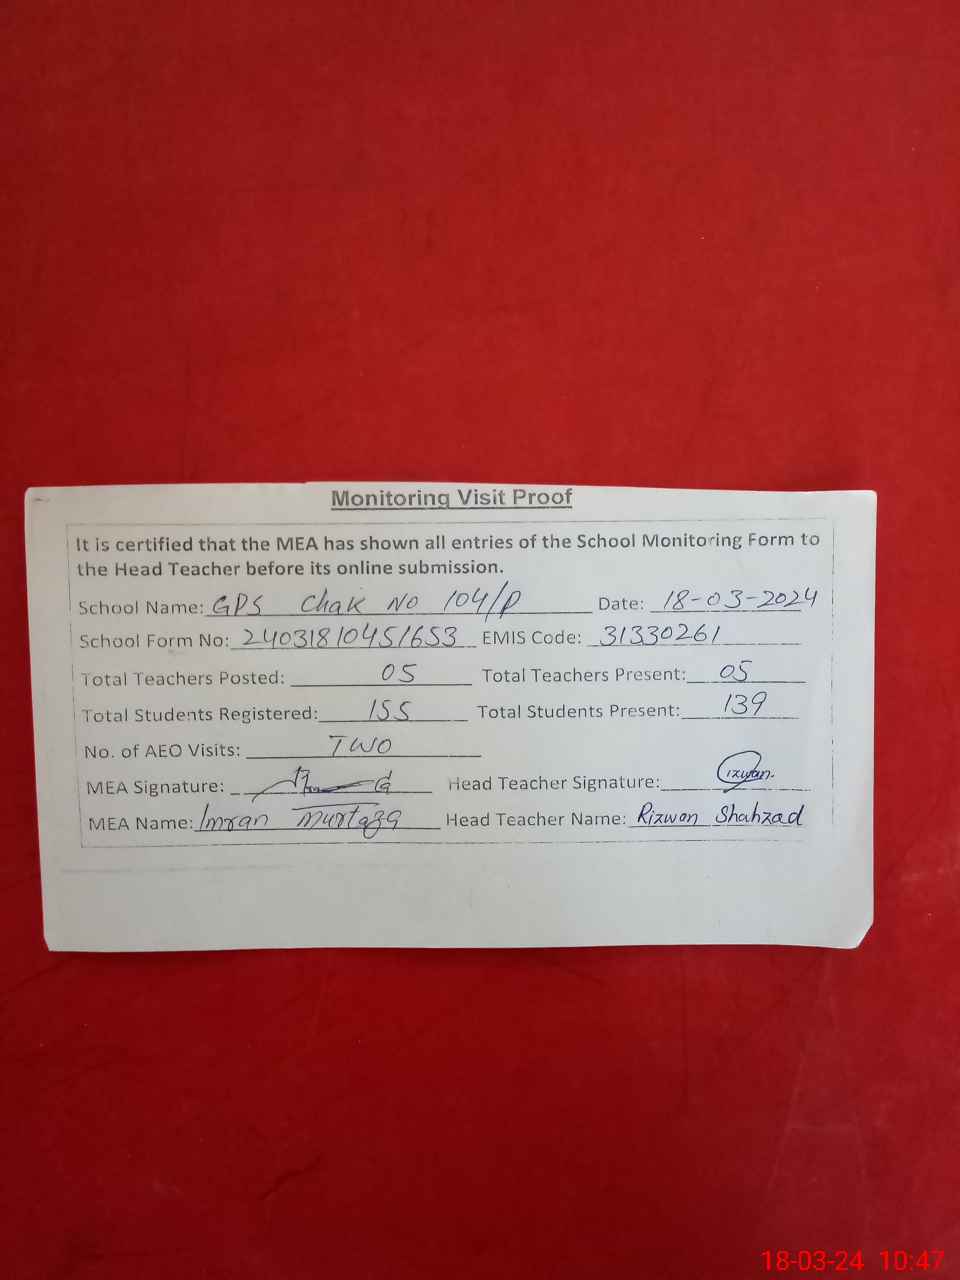 Monitoring Visit Proof
It is certified that the MEA has shown all entries of the School Monitoring Form to
the Head Teacher before its online submission.
School Name: GPS Chak No 104/P Date: 18-03-2024
School Form No: 24031810451653 EMIS Code: 31330261
Total Teachers Posted: 05 Total Teachers Present: 05
Total Students Registered: 155 Total Students Present: 139
No. of AEO Visits: TWO
MEA Signature: Head Teacher Signature: Rizwan.
MEA Name: Imran Murtaza Head Teacher Name: Rizwan Shahzad
18-03-24 10:47